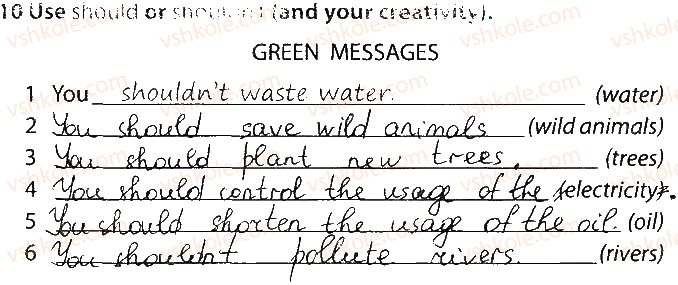 10 Use should or shouldn't (and your creativity).
GREEN MESSAGES
1 You shouldn't waste water. (water)
2 You should save wild animals (wild animals)
3 You should plant new trees. (trees)
4 You should control the usage of the (electricity).
5 You should shorten the usage of the oil. (oil)
6 You shouldn't pollute rivers. (rivers)